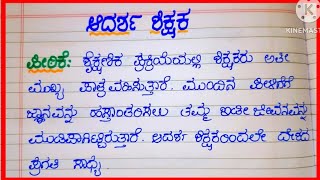 ಆದರ್ಶ ಶಿಕ್ಷಕ
ಪೀಠಿಕೆ: ಶೈಕ್ಷಣಿಕ ಪ್ರಕ್ರಿಯೆಯಲ್ಲಿ ಶಿಕ್ಷಕರು ಅತೀ
ಮುಖ್ಯ ಪಾತ್ರವಹಿಸುತ್ತಾರೆ. ಮುಂದಿನ ಪೀಳಿಗೆಗೆ
ಜ್ಞಾನವನ್ನು ಹಸ್ತಾಂತರಿಸಲು ತಮ್ಮ ಇಡೀ ಜೀವನವನ್ನು
ಮುಡಿಪಾಗಿಟ್ಟಿರುತ್ತಾರೆ. ಆದರ್ಶ ಶಿಕ್ಷಕರಿಂದಲೇ ದೇಶದ
ಪ್ರಗತಿ ಸಾಧ್ಯ
KINEMAST